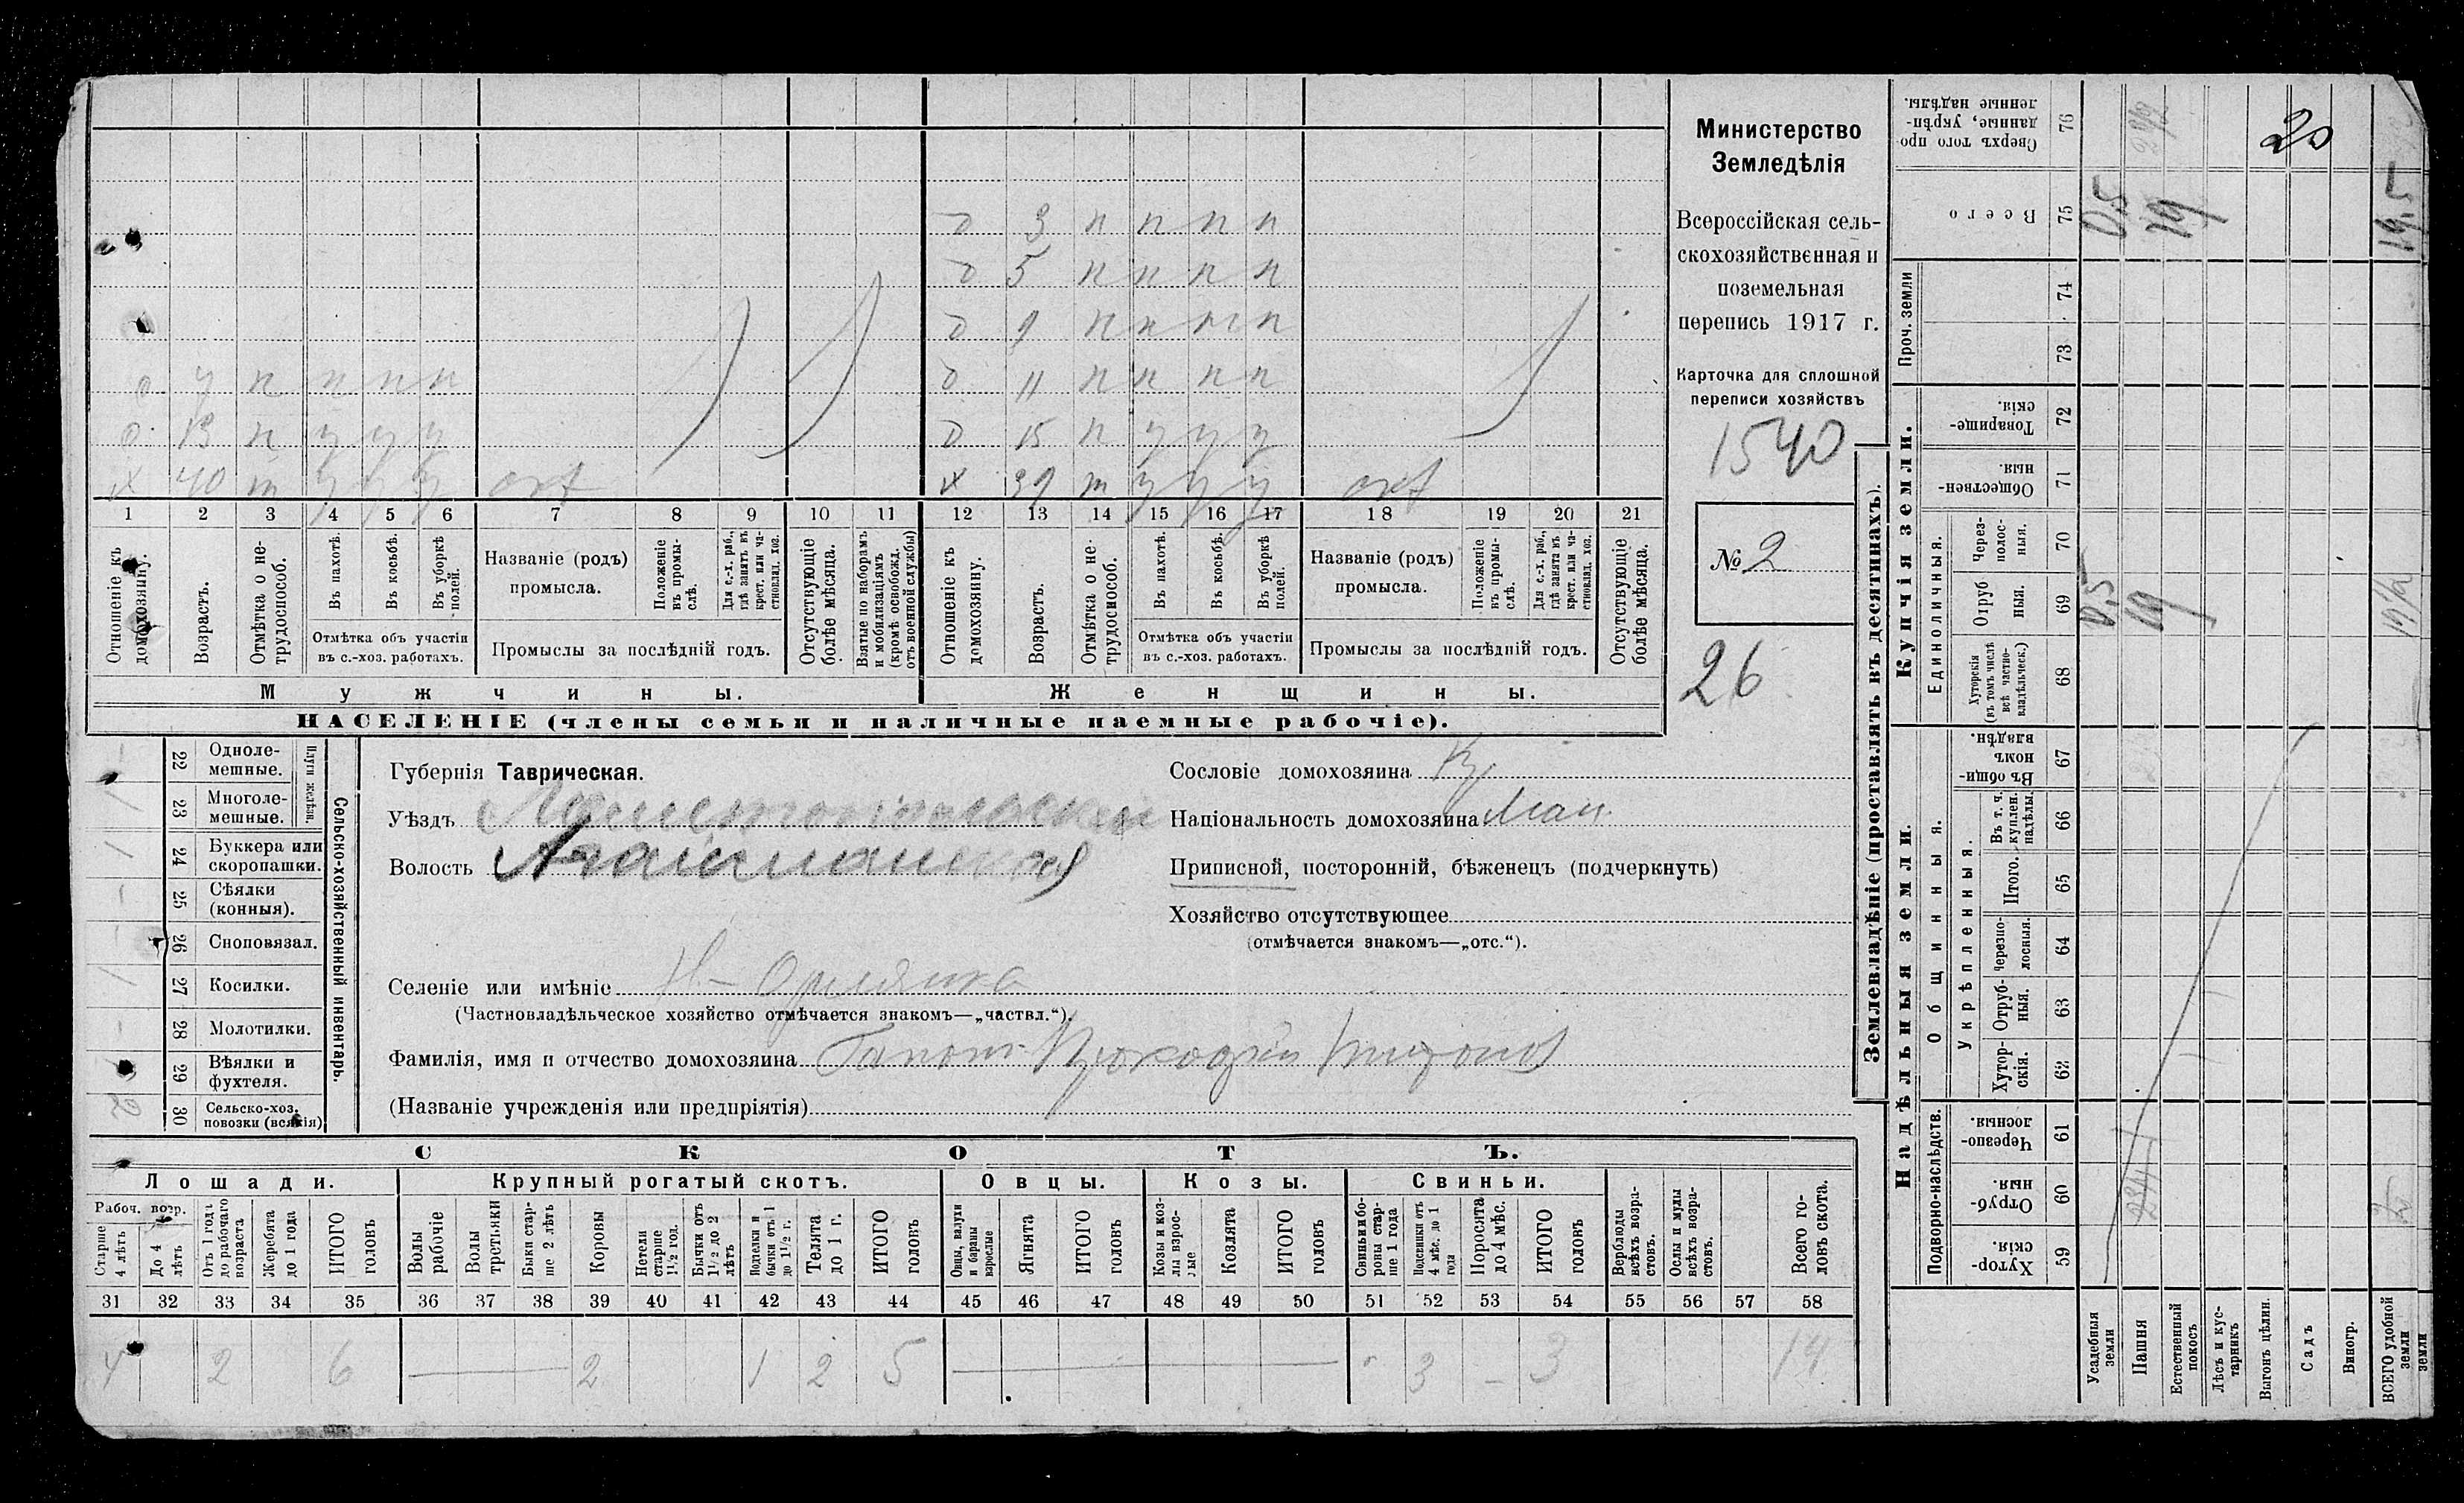 Министерство
Земледѣлія
Всероссійская сель-
скохозяйственная и
поземельная
перепись 1917 г.
Карточка для сплошной
переписи хозяйствъ
1540
№ 2
26
д 3 п п п п
д 5 п п п п
д 9 п п п п
д 7 п п п п
д 11 п п п п
д 13 п у у у
д 15 п у у у
х 40 т у у у
х 39 т у у у
1 2 3 4 5 6 7 8 9 10 11 12 13 14 15 16 17 18 19 20 21
Отношеніе къ домохозяину.
Возрастъ.
Отмѣтка о не-трудоспособ.
Въ пахотѣ.
Въ косьбѣ.
Въ уборкѣ полей.
Отмѣтка объ участіи
въ с.-хоз. работахъ.
Названіе (родъ)
промысла.
Положеніе въ промы-слѣ.
Для с.-х. раб., гдѣ занятъ въ крест. или ча-стновлад. хоз.
Промыслы за послѣдній годъ.
Отсутствующіе болѣе мѣсяца.
Взятые по наборамъ и мобилизаціямъ (кромѣ освобожд. отъ военной службы)
Отношеніе къ домохозяину.
Возрастъ.
Отмѣтка о не-трудоспособ.
Въ пахотѣ.
Въ косьбѣ.
Въ уборкѣ полей.
Отмѣтка объ участіи
въ с.-хоз. работахъ.
Названіе (родъ)
промысла.
Положеніе въ промы-слѣ.
Для с.-х. раб., гдѣ занята въ крест. или ча-стновлад. хоз.
Промыслы за послѣдній годъ.
Отсутствующіе болѣе мѣсяца.
Мужчины.
Женщины.
НАСЕЛЕНІЕ (члены семьи и наличные наемные рабочіе).
Сельско-хозяйственный инвентарь.
Плуги желѣзн.
22 Одноле-мешные.
23 Многоле-мешные.
24 Буккера или скоропашки.
25 Сѣялки (конныя).
26 Сноповязал.
27 Косилки.
28 Молотилки.
29 Вѣялки и фухтеля.
30 Сельско-хоз. повозки (всякія)
Губернія Таврическая.
Уѣздъ Мелитопольскій
Волость
Сословіе домохозяина Кр.
Національность домохозяина
Приписной, посторонній, бѣженецъ (подчеркнуть)
Хозяйство отсутствующее
(отмѣчается знакомъ—„отс.“).
Селеніе или имѣніе Н-Орлянка
(Частновладѣльческое хозяйство отмѣчается знакомъ—„частвл.“).
Фамилія, имя и отчество домохозяина
(Названіе учрежденія или предпріятія)
СКОТЪ.
Лошади. Крупный рогатый скотъ. Овцы. Козы. Свиньи.
Рабоч. возр.
Старше 4 лѣтъ
До 4 лѣтъ
Отъ 1 года до рабочаго возраста
Жеребята до 1 года
ИТОГО головъ
Волы рабочіе
Волы третьяки
Быки стар-ше 2 лѣтъ
Коровы
Нетели старше 1½ год.
Бычки отъ 1½ до 2 лѣтъ
Телки и бычки отъ 1 до 1½ г.
Телята до 1 г.
ИТОГО головъ
Овцы, валухи и бараны взрослые
Ягнята
ИТОГО головъ
Козы и коз-лы взрос-лые
Козлята
ИТОГО головъ
Свиньи и бо-ровы стар-ше 1 года
Подсвинки отъ 4 мѣс. до 1 года
Поросята до 4 мѣс.
ИТОГО головъ
Верблюды всѣхъ возра-стовъ.
Ослы и мулы всѣхъ возра-стовъ.
Всего го-ловъ скота.
31 32 33 34 35 36 37 38 39 40 41 42 43 44 45 46 47 48 49 50 51 52 53 54 55 56 57 58
4 2 6 2 1 2 5 3 3 14
Землевладѣніе (проставлять въ десятинахъ).
Купчія земли.
Надѣльныя земли.
Сверхъ того про-данные, укрѣп-ленные надѣлы. 76
Всего 75
Проч. земли 74 73
Товарище-скія. 72
Обществен-ныя. 71
Единоличныя.
Через-полос-ныя. 70
Отруб-ныя. 69
Хуторскія (въ томъ числѣ всѣ частно-владѣльческ.) 68
Общинныя.
Въ общин-номъ владѣн. 67
Укрѣпленныя.
Въ т. ч. куплен. надѣлы. 66
Итого. 65
Черезпо-лосныя. 64
Отруб-ныя. 63
Хутор-скія. 62
Подворно-наслѣдств.
Черезпо-лосныя. 61
Отруб-ныя. 60
Хутор-скія. 59
Усадебныя земли
Пашня
Естественный покосъ
Лѣсъ и кус-тарникъ
Выгонъ цѣлин.
Садъ
Виногр.
ВСЕГО удобной земли
20
0,5 19 19,5
0,5 19 19½